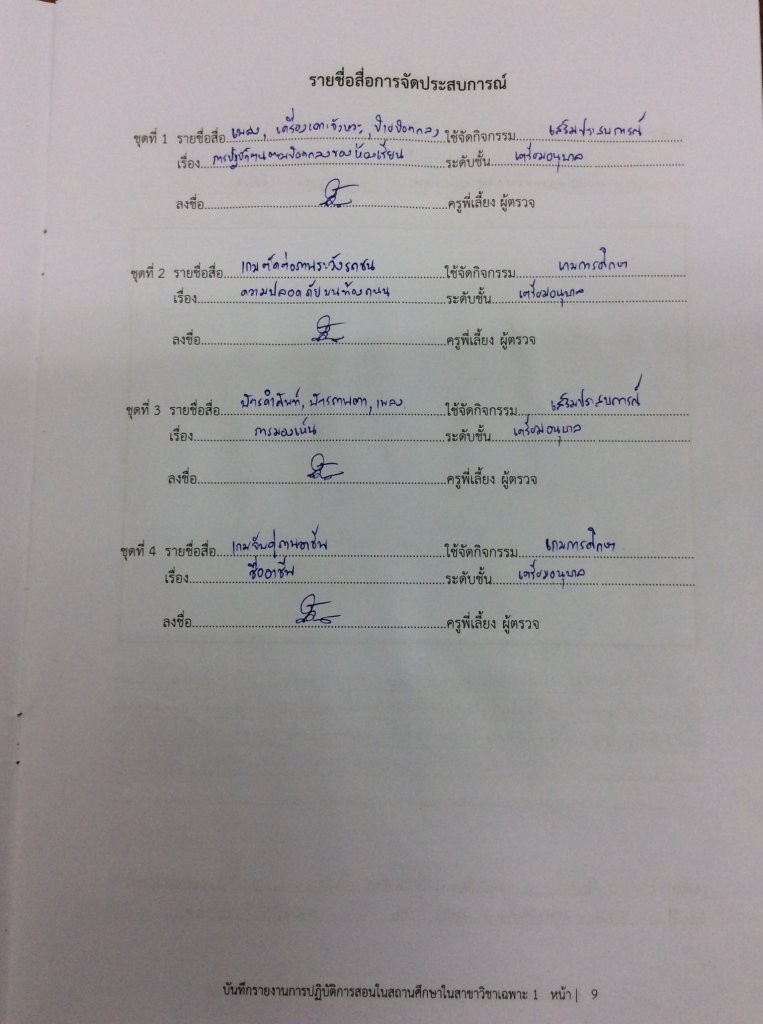 รายชื่อสื่อการจัดประสบการณ์
ชุดที่ 1 รายชื่อสื่อ เพลง, เครื่องเคาะจังหวะ, ป้ายข้อตกลง ใช้จัดกิจกรรม เสริมประสบการณ์
เรื่อง การปฏิบัติตนตามข้อตกลงของห้องเรียน ระดับชั้น เตรียมอนุบาล
ลงชื่อ ครูพี่เลี้ยง ผู้ตรวจ
ชุดที่ 2 รายชื่อสื่อ เกมตัดต่อภาพระวังรถชน ใช้จัดกิจกรรม เกมการศึกษา
เรื่อง ความปลอดภัยบนท้องถนน ระดับชั้น เตรียมอนุบาล
ลงชื่อ ครูพี่เลี้ยง ผู้ตรวจ
ชุดที่ 3 รายชื่อสื่อ บัตรคำศัพท์, บัตรภาพตา, เพลง ใช้จัดกิจกรรม เสริมประสบการณ์
เรื่อง การมองเห็น ระดับชั้น เตรียมอนุบาล
ลงชื่อ ครูพี่เลี้ยง ผู้ตรวจ
ชุดที่ 4 รายชื่อสื่อ เกมจับคู่ภาพอาชีพ ใช้จัดกิจกรรม เกมการศึกษา
เรื่อง ชื่ออาชีพ ระดับชั้น เตรียมอนุบาล
ลงชื่อ ครูพี่เลี้ยง ผู้ตรวจ
บันทึกรายงานการปฏิบัติการสอนในสถานศึกษาในสาขาวิชาเฉพาะ 1 หน้า | 9